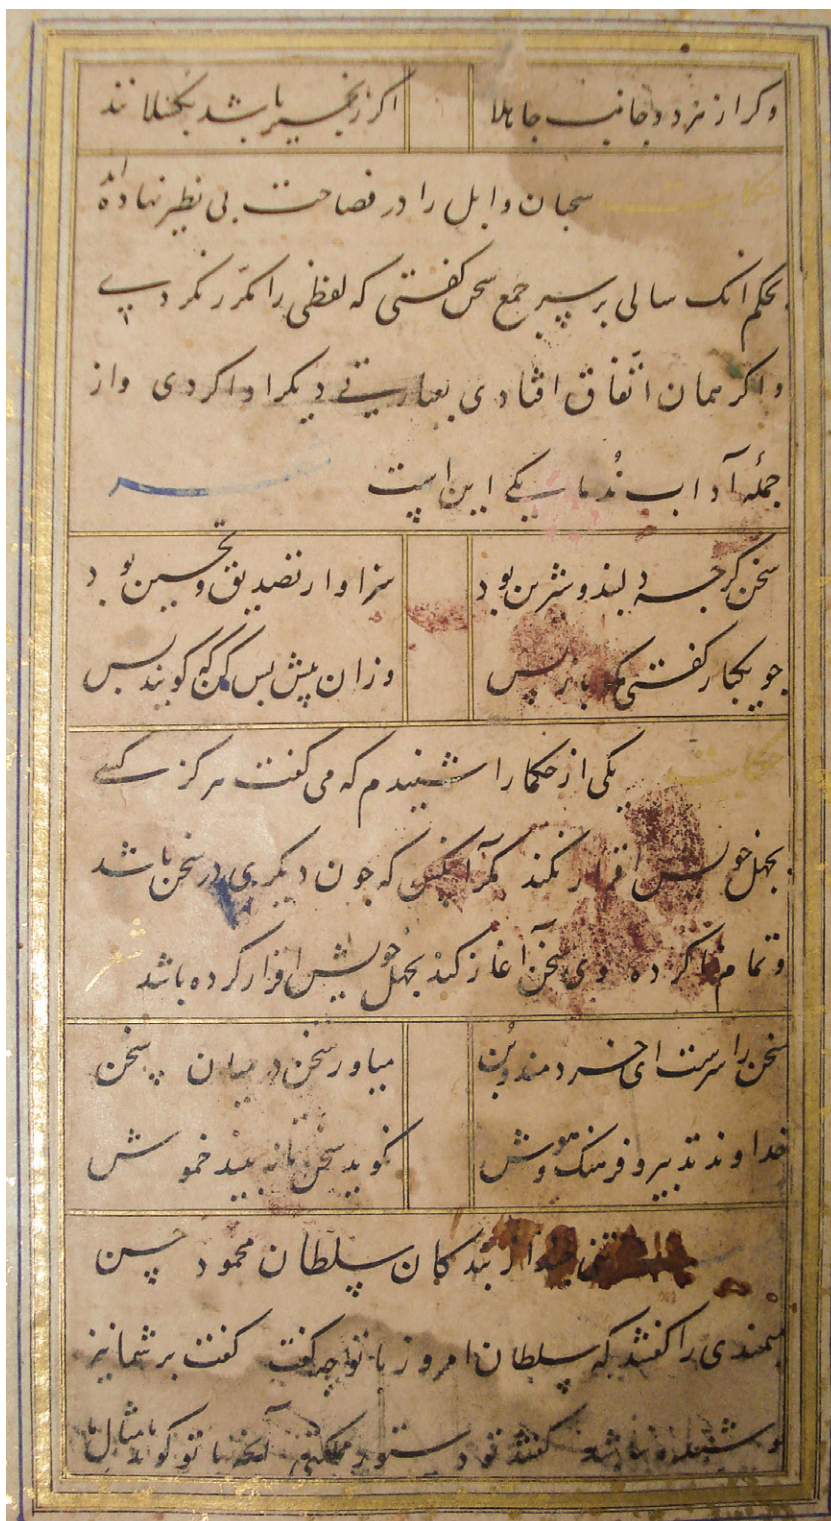 وکر از هر دو جانب جاهلا اکر زنجیر باشد بکسلانند
حکایت سحبان وایل را در فصاحت بی نظیر نهاده اند
بحکم انک سالی بر سر جمع سخن کفتی که لفظی را مکرّر نکردی
واکر همان اتّفاق افتادی بعبارتی دیکر ادا کردی واز
جملهٔ آداب نُدما یکی این است
سخن کرجه دلبند وشیرین بود سزاوار تصدیق وتحسین بود
جو یکبار کفتی مکو باز پس وزان پیش بس کن که کویند بس
حکایت یکی از حکما را شنیدم که می کفت هرکز کسی
بجهل خویش اقرار نکند مکر آنکس که جون دیکری در سخن باشد
و تمام نا کرده وی سخن آغاز کند بجهل خویش اقرار کرده باشد
سخن را سرست ای خردمند وبُن میاور سخن در میان سخن
خداوند تدبیر وفرهنک وهوش نکوید سخن تا نه بیند خموش
تنی چند از بندکان سلطان محمود حسن
میمندی را کفتند که سلطان امروز با تو چه کفت کفت بر شما نیز
بوشیده نباشد کفتند تو دستور مملکتی آنچه با تو کوید بامثال ما